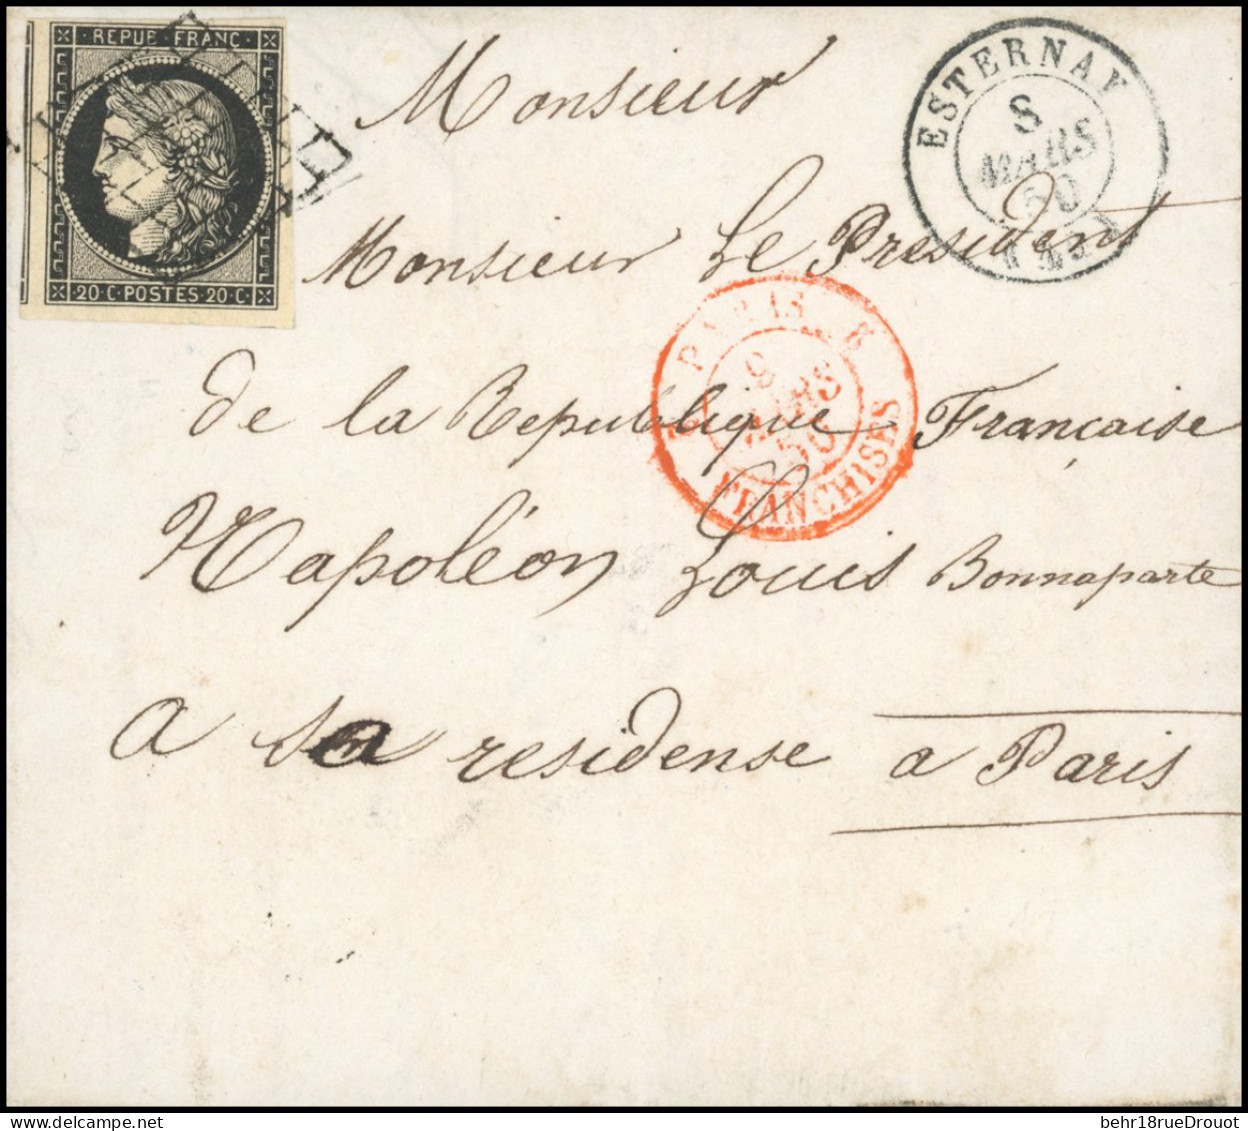 REPUB · FRANC ·
20 · C · POSTES · 20 · C ·
ESTERNAY
8
MARS
50
Monsieur
Monsieur Le President
de la Republique Française
Napoléon Louis Bonnaparte
a sa residense a Paris
PARIS
9
MARS
50
FRANCHISES
behr18rueDrouot